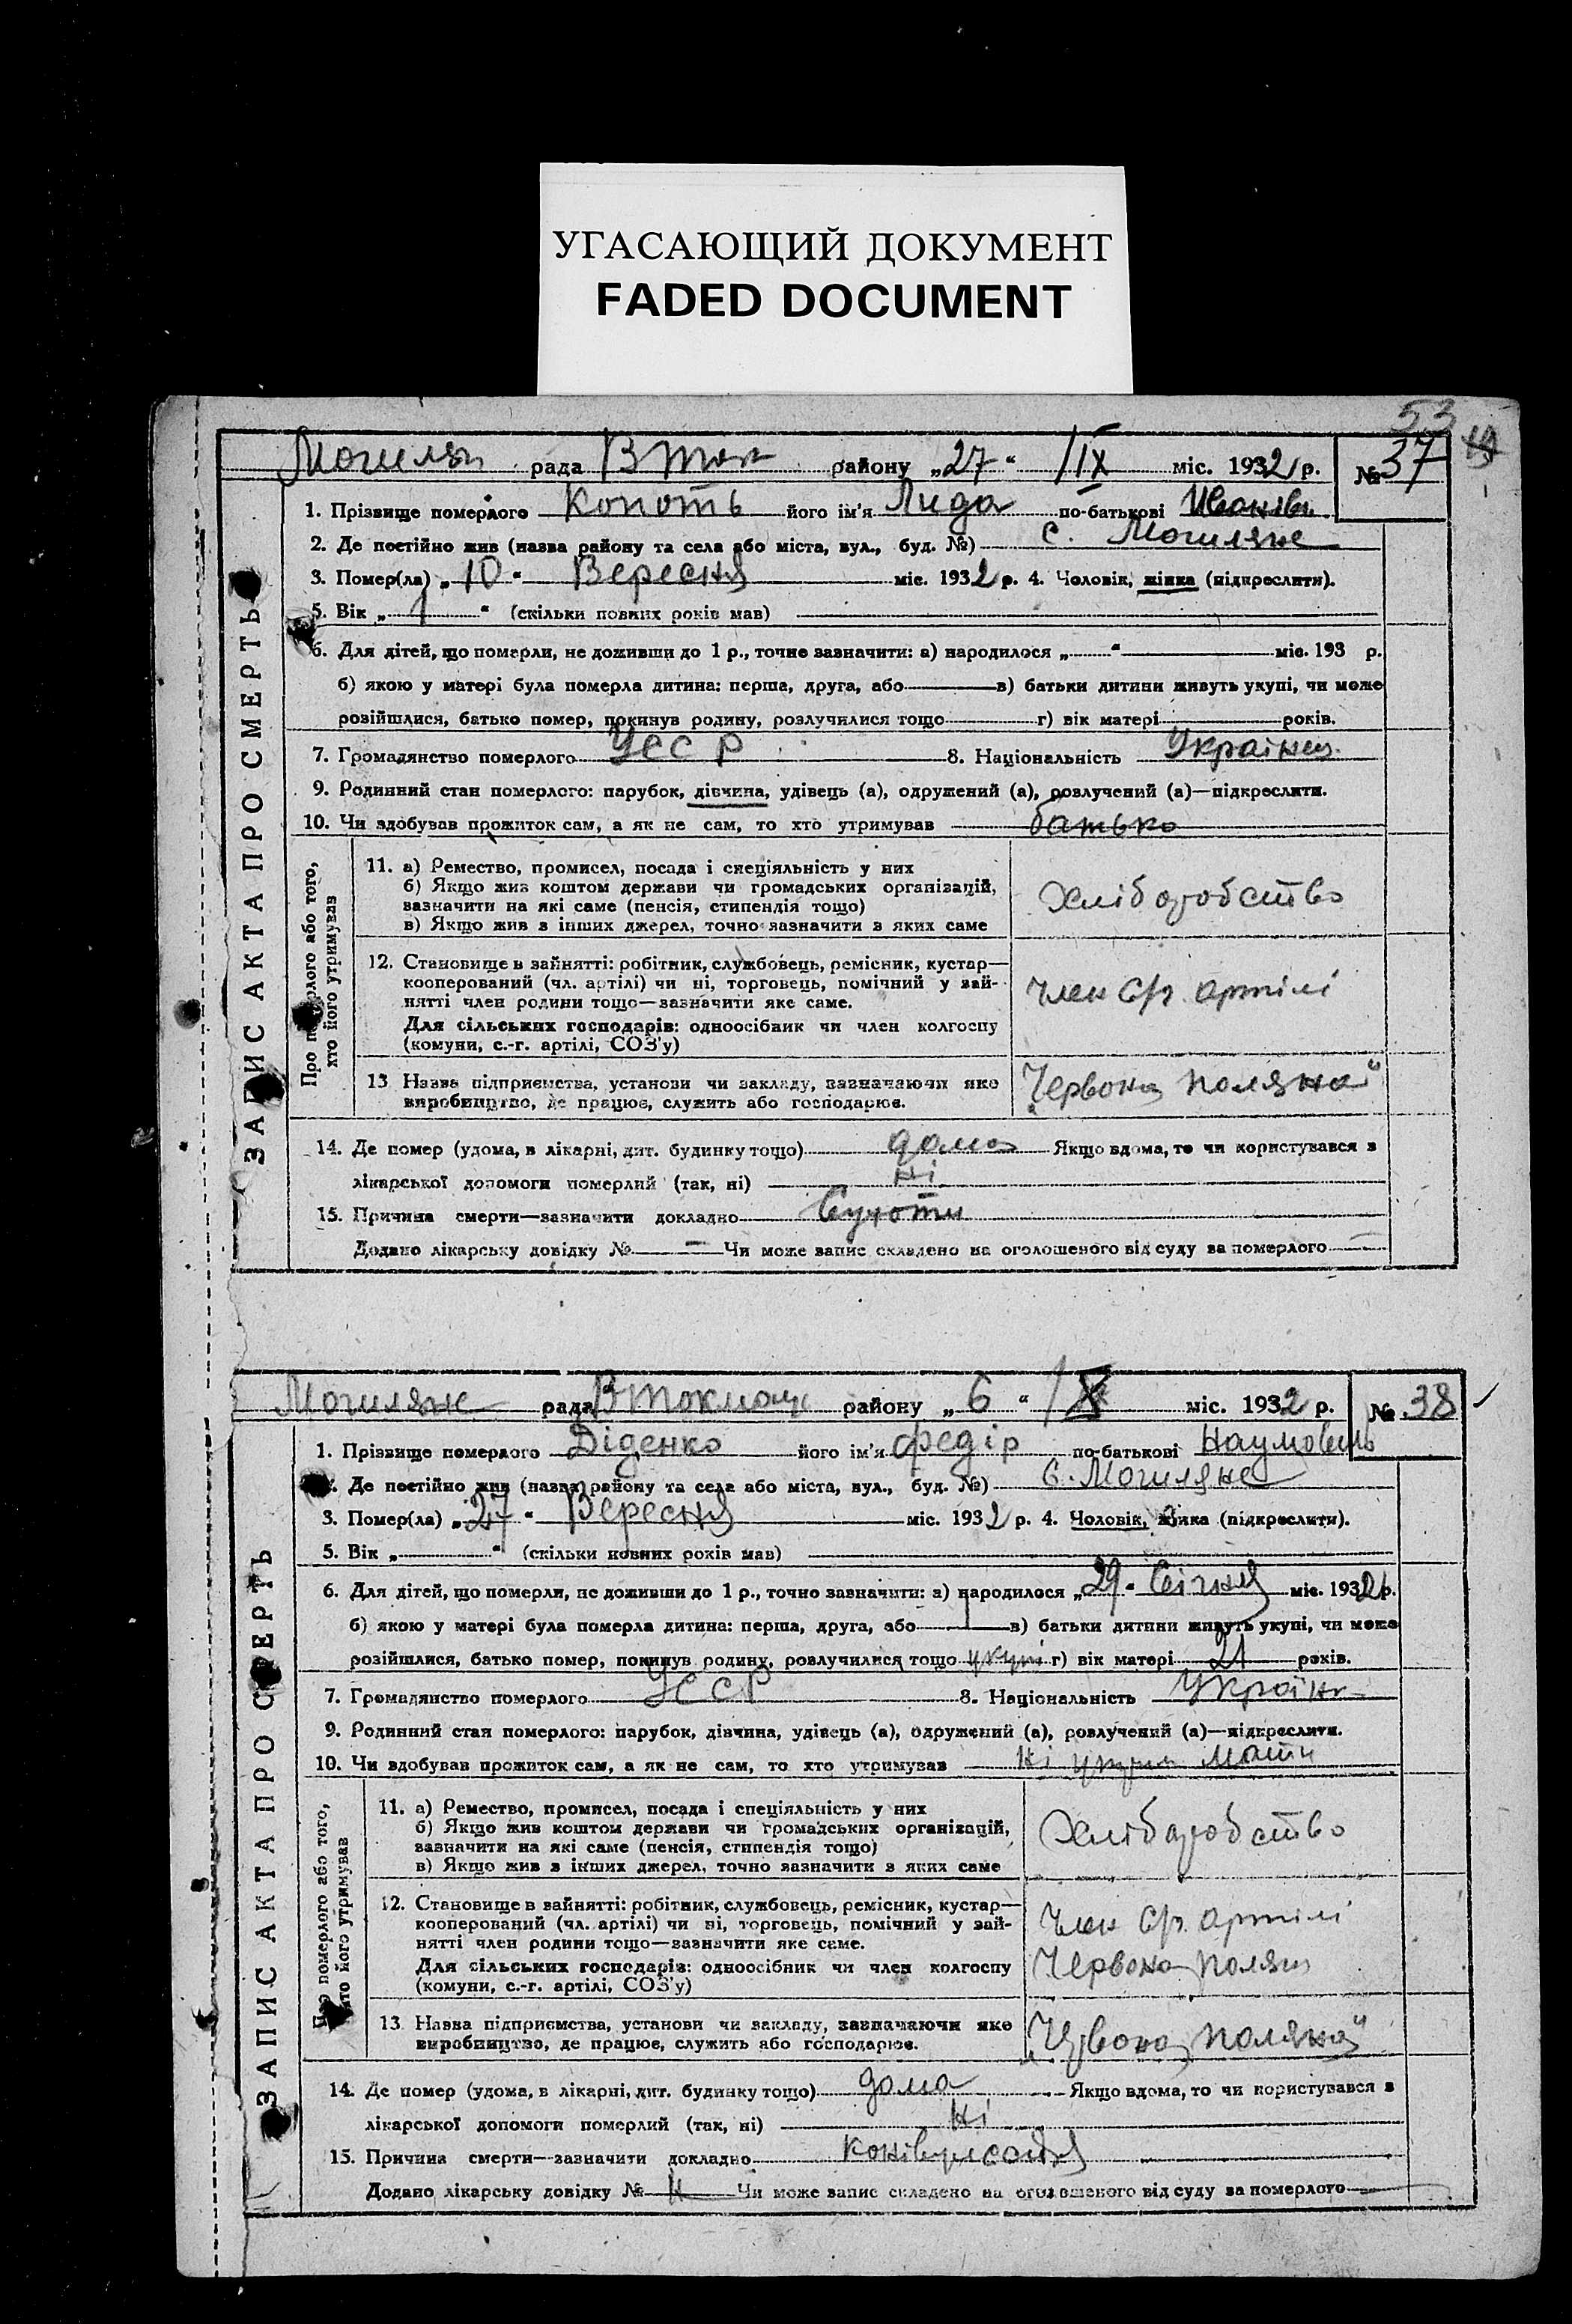 УГАСАЮЩИЙ ДОКУМЕНТ
FADED DOCUMENT
53
Могилян рада В Ток району „27“ /IX міс. 1932 р. № 37
1. Прізвище померлого Копоть його ім'я Лида по-батькові Иванівн
2. Де постійно жив (назва району та села або міста, вул., буд. №) с. Могиляне
3. Помер(ла) „10“ Вересня міс. 1932 р. 4. Чоловік, жінка (підкреслити).
5. Вік „1“ (скільки повних років мав)
6. Для дітей, що померли, не доживши до 1 р., точно зазначити: а) народилося „ “ міс. 193 р.
б) якою у матері була померла дитина: перша, друга, або в) батьки дитини живуть укупі, чи може
розійшлися, батько помер, покинув родину, розлучилися тощо г) вік матері років.
7. Громадянство померлого УССР 8. Національність Українка
9. Родинний стан померлого: парубок, дівчина, удівець (а), одружений (а), розлучений (а)—підкреслити.
10. Чи здобував прожиток сам, а як не сам, то хто утримував батько
ЗАПИС АКТА ПРО СМЕРТЬ
Про померлого або того,
хто його утримував
11. а) Ремество, промисел, посада і спеціяльність у них
б) Якщо жив коштом держави чи громадських організацій,
зазначити на які саме (пенсія, стипендія тощо)
в) Якщо жив з інших джерел, точно зазначити з яких саме
Хліборобство
12. Становище в зайнятті: робітник, службовець, ремісник, кустар—
кооперований (чл. артілі) чи ні, торговець, помічний у зай-
нятті член родини тощо—зазначити яке саме.
Для сільських господарів: одноосібник чи член колгоспу
(комуни, с.-г. артілі, СОЗ'у)
Член С/г. артілі
13. Назва підприємства, установи чи закладу, зазначаючи яке
виробництво, де працює, служить або господарює.
„Червона поляна“
14. Де помер (удома, в лікарні, дит. будинку тощо) дома Якщо вдома, то чи користувався з
лікарської допомоги померлий (так, ні) ні
15. Причина смерти—зазначити докладно Сухоти
Додано лікарську довідку № — Чи може запис складено на оголошеного від суду за померлого
Могиляне рада В Токмац району „6“ /X міс. 1932 р. № 38
1. Прізвище померлого Діденко його ім'я Федір по-батькові Наумович
2. Де постійно жив (назва району та села або міста, вул., буд. №) с. Могиляне
3. Помер(ла) „27“ Вересня міс. 1932 р. 4. Чоловік, жінка (підкреслити).
5. Вік „ “ (скільки повних років мав)
6. Для дітей, що померли, не доживши до 1 р., точно зазначити: а) народилося „29“ Січня міс. 1932 р.
б) якою у матері була померла дитина: перша, друга, або 1 в) батьки дитини живуть укупі, чи може
розійшлися, батько помер, покинув родину, розлучилися тощо укупі г) вік матері 21 років.
7. Громадянство померлого УССР 8. Національність Україн
9. Родинний стан померлого: парубок, дівчина, удівець (а), одружений (а), розлучений (а)—підкреслити.
10. Чи здобував прожиток сам, а як не сам, то хто утримував Ні мати
ЗАПИС АКТА ПРО СМЕРТЬ
Про померлого або того,
хто його утримував
11. а) Ремество, промисел, посада і спеціяльність у них
б) Якщо жив коштом держави чи громадських організацій,
зазначити на які саме (пенсія, стипендія тощо)
в) Якщо жив з інших джерел, точно зазначити з яких саме
Хліборобство
12. Становище в зайнятті: робітник, службовець, ремісник, кустар—
кооперований (чл. артілі) чи ні, торговець, помічний у зай-
нятті член родини тощо—зазначити яке саме.
Для сільських господарів: одноосібник чи член колгоспу
(комуни, с.-г. артілі, СОЗ'у)
Член С/г. артілі
Червона поляна
13. Назва підприємства, установи чи закладу, зазначаючи яке
виробництво, де працює, служить або господарює.
„Червона поляна“
14. Де помер (удома, в лікарні, дит. будинку тощо) дома Якщо вдома, то чи користувався з
лікарської допомоги померлий (так, ні) ні
15. Причина смерти—зазначити докладно
Додано лікарську довідку № Чи може запис складено на оголошеного від суду за померлого